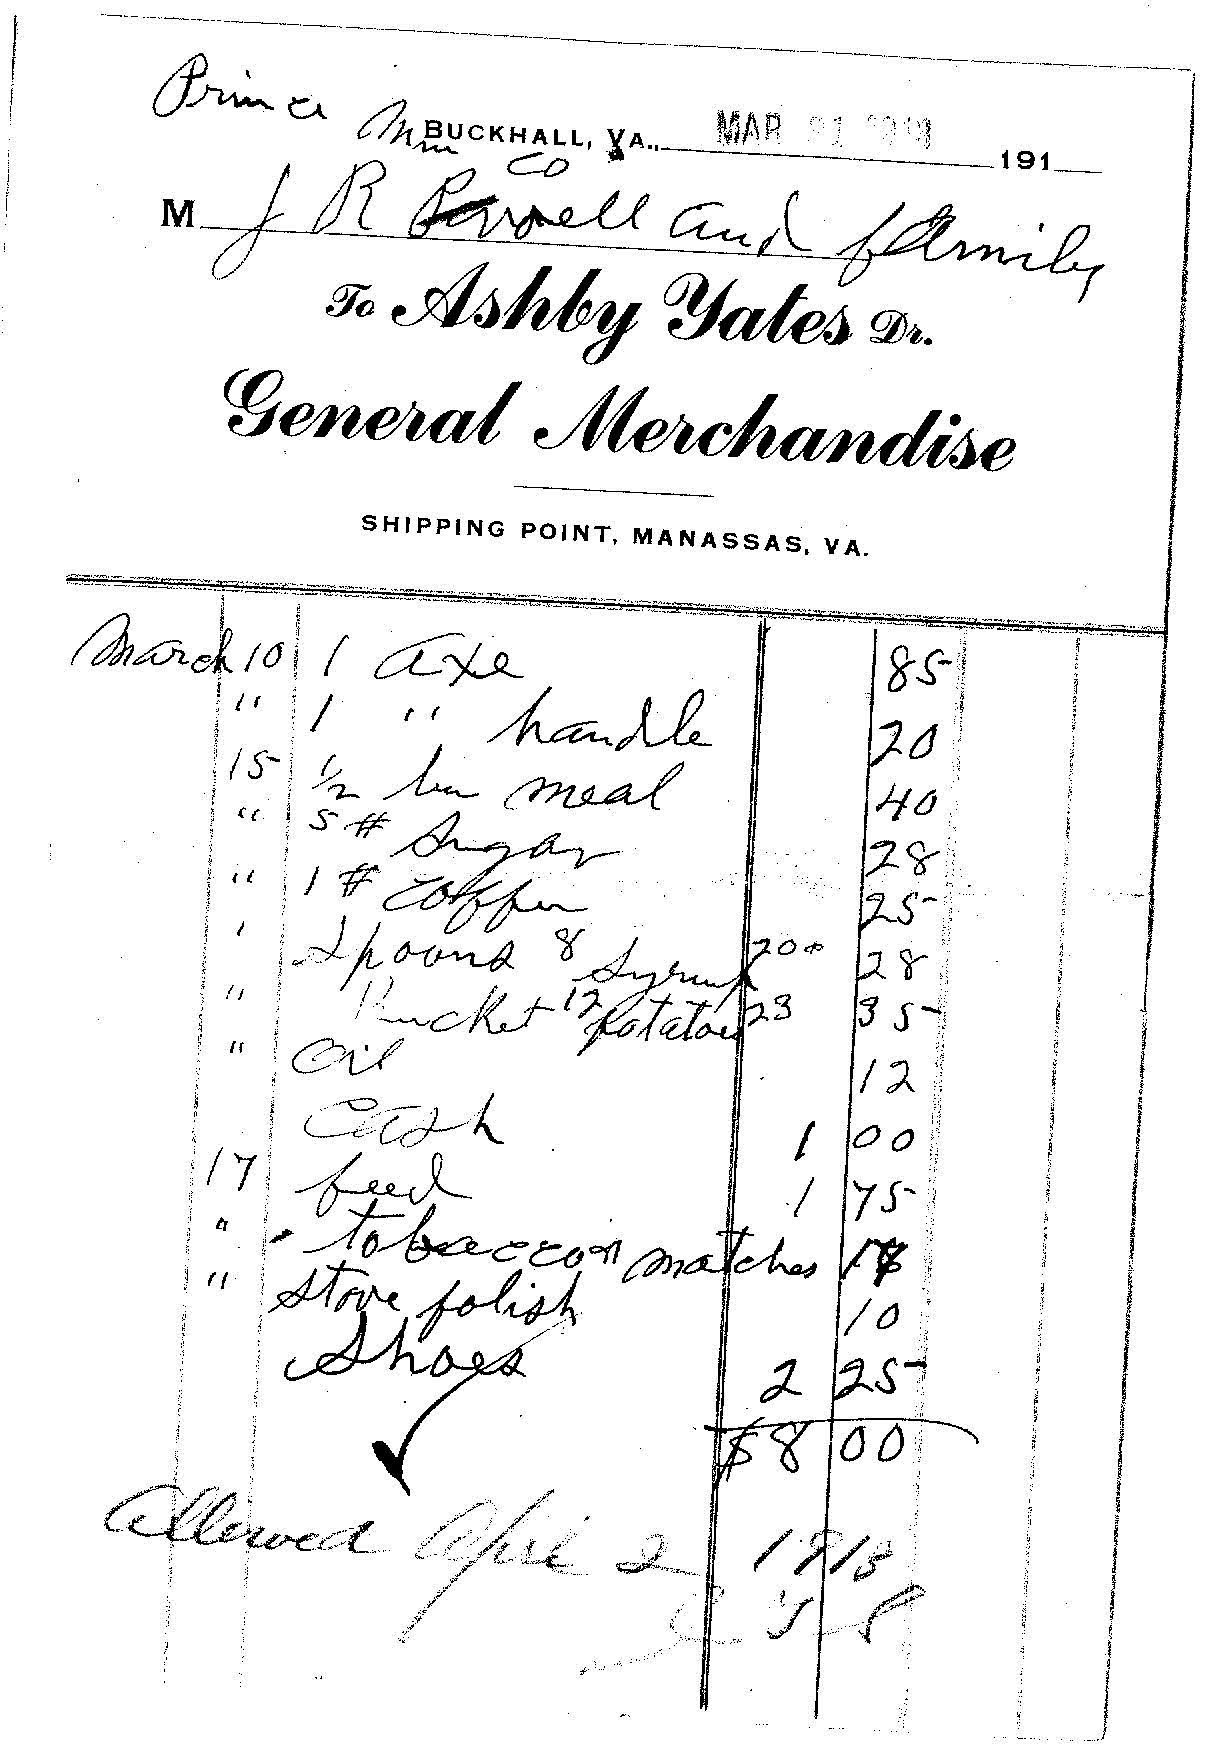 Prince
Wm BUCKHALL, VA., MAR 31 191
Co
M J R and family
To Ashby Yates Dr.
General Merchandise
SHIPPING POINT, MANASSAS, VA.
March 10 1 axe 85
" 1 " handle 20
15 1/2 bu meal 40
" 5# Sugar 28
" 1# coffee 25
" Spoons 8 Syrup 20 28
" Bucket 12 potatoes 23 35
" Oil 12
Cash 1 00
17 feed 1 75
" tobacco matches
" stove polish 10
Shoes 2 25
$8 00
allowed April 2 1918